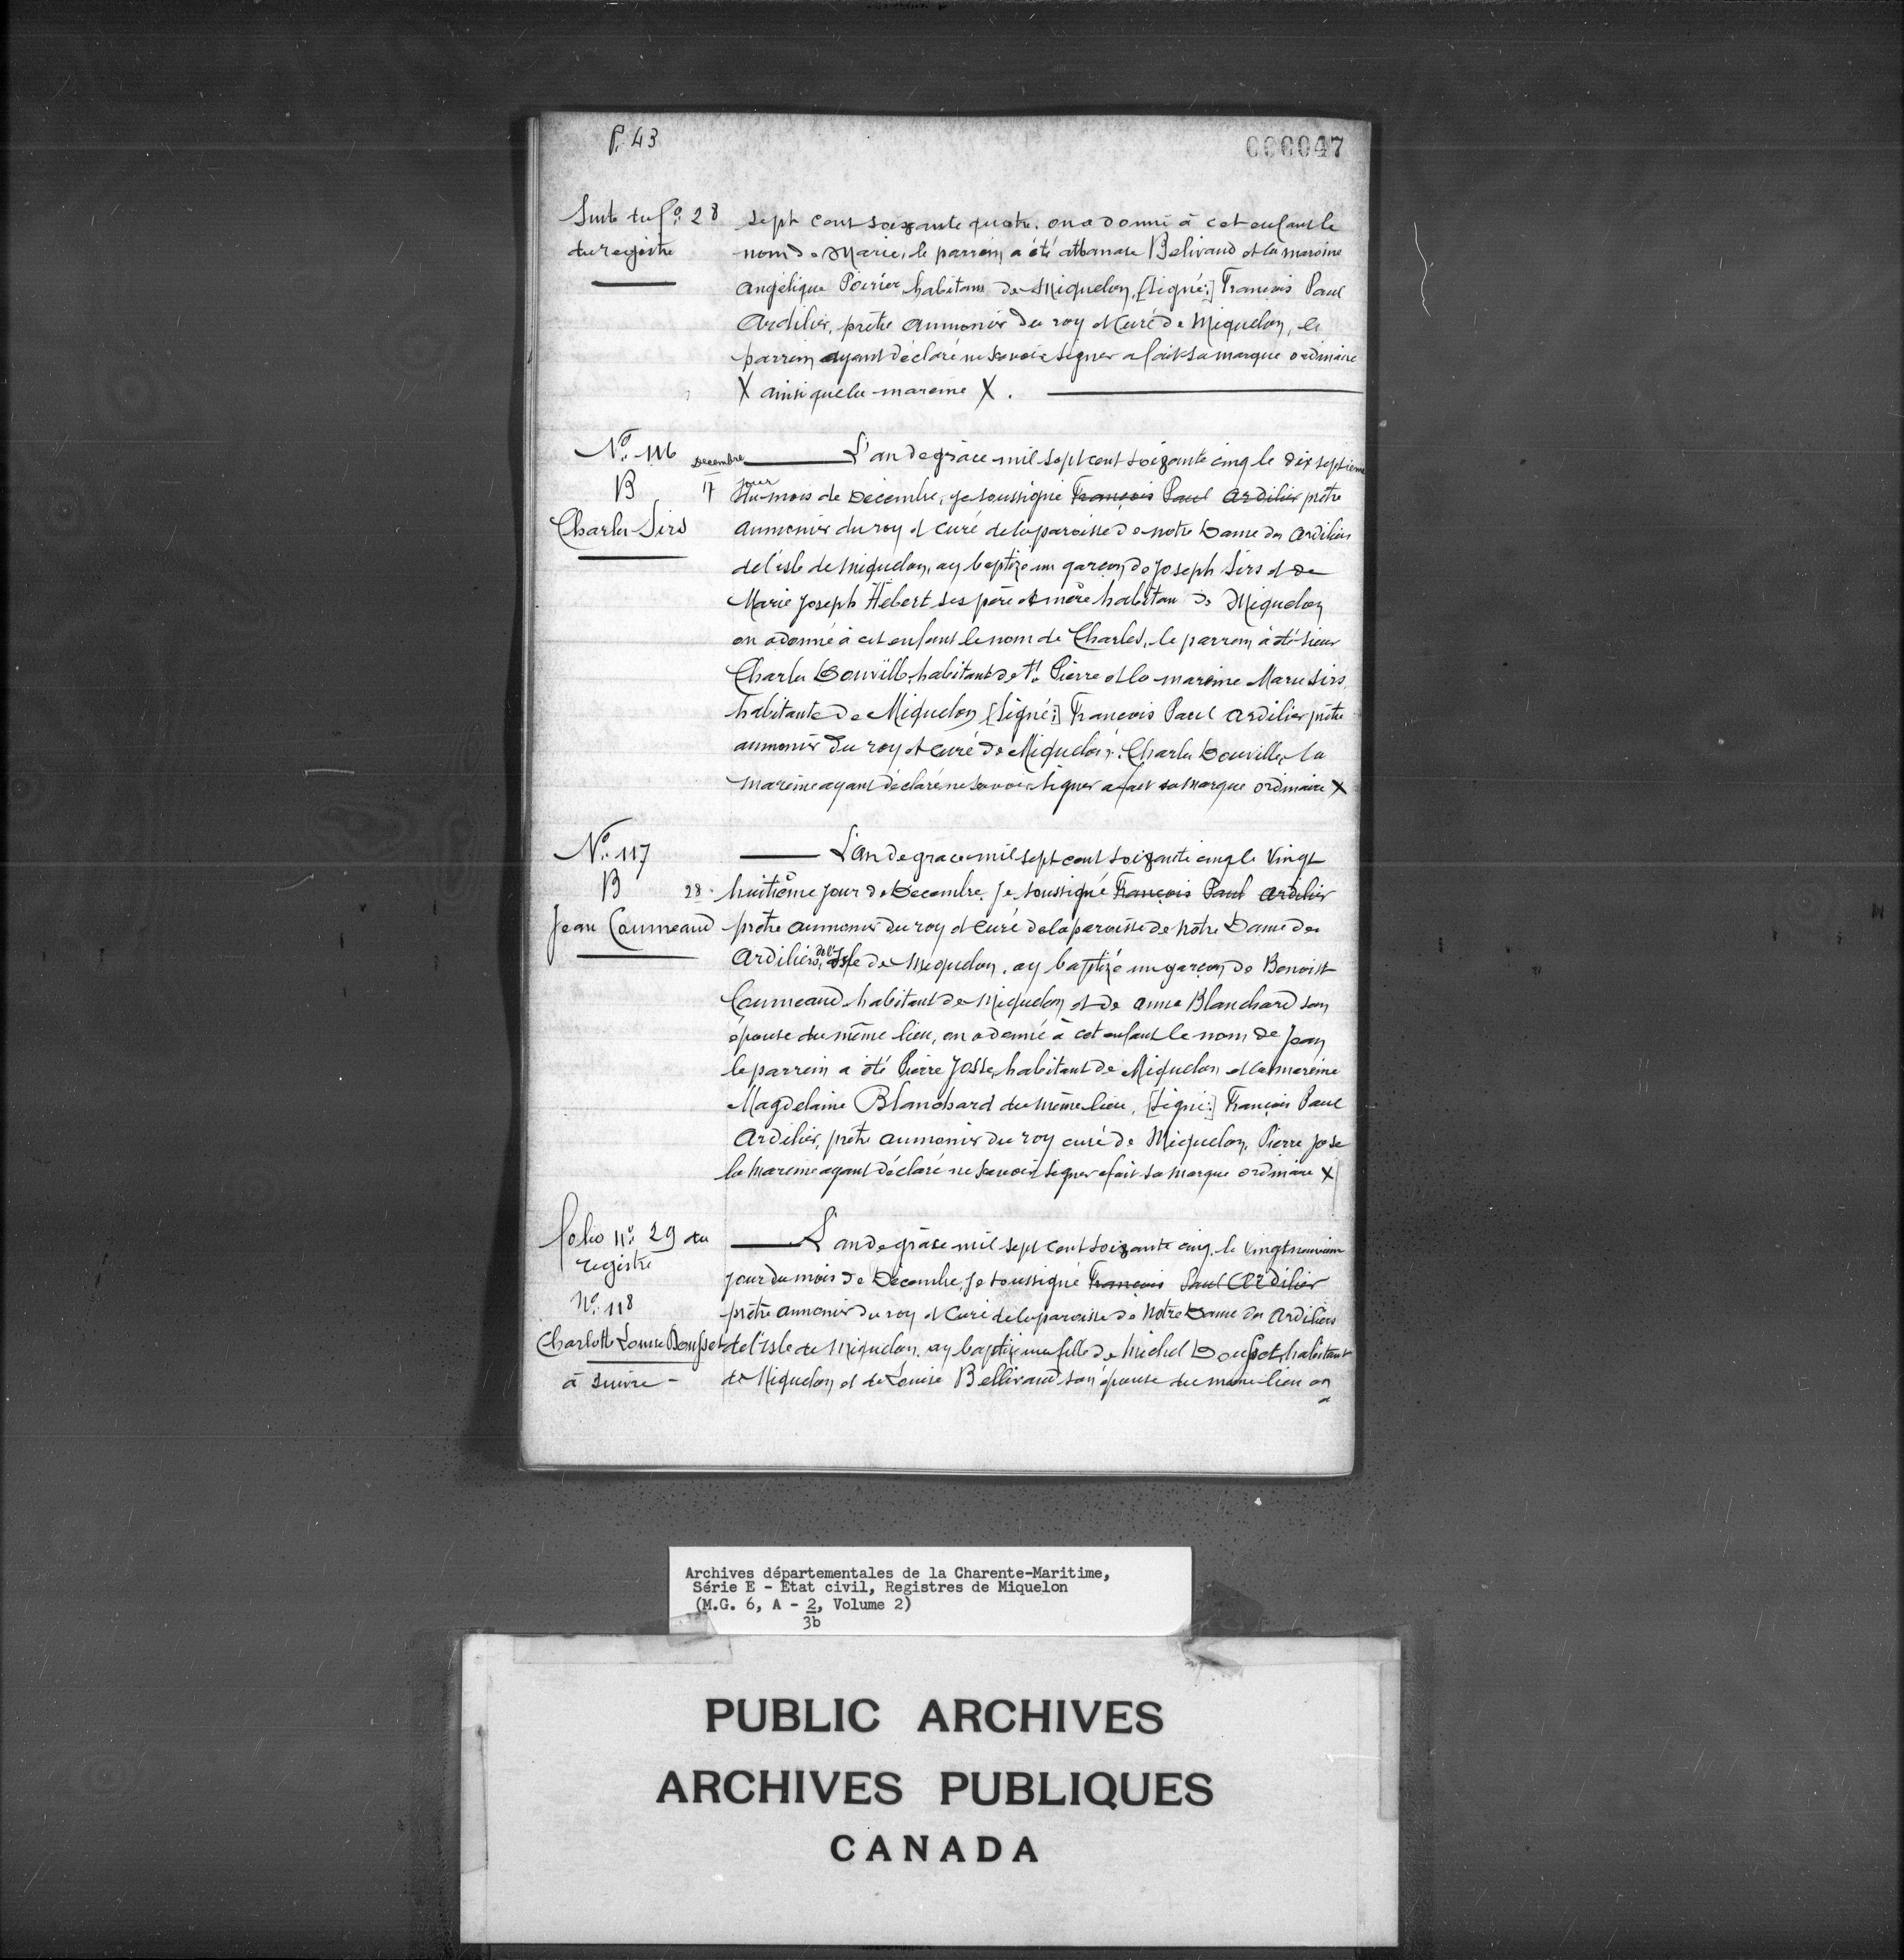 P. 43
000047
Suite du fo. 28
du registre
sept cent soixante quatre. on a donné à cet enfant le
nom de Marie, le parrein a été athanase Belivaud et la mareine
angélique Poirier habitans de Miquelon, [signé:] François Paul
Ardilier, prêtre aumonier du roy et Curé de Miquelon, le
parrein ayant déclaré ne savoir signer a fait sa marque ordinaire
X ainsi que la mareine X.
No. 116
B
Charles Sirs
Decembre
17
L'an de grâce mil sept cent soixante cinq le dix septieme
jour
du mois de Decembre, je soussigné François Paul Ardilier prêtre
aumonier du roy et curé de la paroisse de notre Dame des Ardiliers
de l'isle de Miquelon, ay baptizé un garçon de Joseph Sirs et de
Marie Joseph Hébert ses père et mère habitans de Miquelon
on a donné à cet enfant le nom de Charles, le parrein à été sieur
Charles Douville, habitant de St. Pierre et la mareine Marie Sirs,
habitante de Miquelon [signé:] François Paul Ardilier prêtre
aumonier du roy et curé de Miquelon. Charles Douville, la
mareine ayant déclaré ne savoir signer a fait sa marque ordinaire X
No. 117
B
28.
Jean Coumeaud
L'an de grace mil sept cent soixante cinq le vingt
huitième jour de Decembre, Je soussigné François Paul Ardilier
prêtre aumonier du roy et Curé de la paroisse de Notre Dame des
Ardiliers, de l'Isle de Miquelon, ay baptizé un garçon de Benoist
Coumeaud habitant de Miquelon et de anne Blanchard son
épouse du même lieu, on a donné à cet enfant le nom de Jean
le parrein a été Pierre Josse, habitant de Miquelon et la mareine
Magdelaine Blanchard du même lieu, [signé:] François Paul
Ardilier, prêtre aumonier du roy curé de Miquelon, Pierre Jose
la mareine ayant déclaré ne savoir signer a fait sa marque ordinaire X
folio No. 29 du
registre
No. 118
Charlotte Louise Doupset
à suivre -
L'an de grâce mil sept cent soixante cinq, le vingt neuvieme
jour du mois de Décembre, Je soussigné François Paul Ardilier
prêtre aumonier du roy et Curé de la paroisse de Notre Dame des Ardiliers
de l'isle de Miquelon, ay baptizé une fille de Michel Doupset, habitant
de Miquelon et de Louise Bellivaud son épouse du même lieu on
a
Archives départementales de la Charente-Maritime,
Série E - Etat civil, Registres de Miquelon
(M.G. 6, A - 2, Volume 2)
3b
PUBLIC ARCHIVES
ARCHIVES PUBLIQUES
CANADA